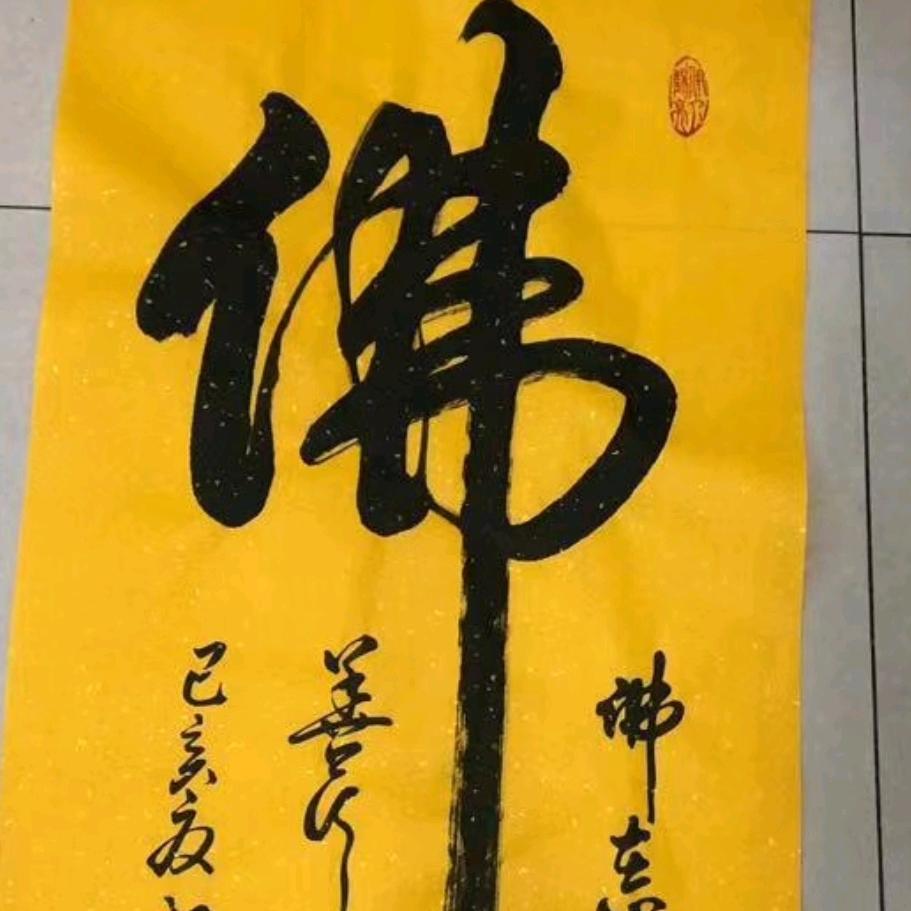 佛
佛在
善行
己亥夏